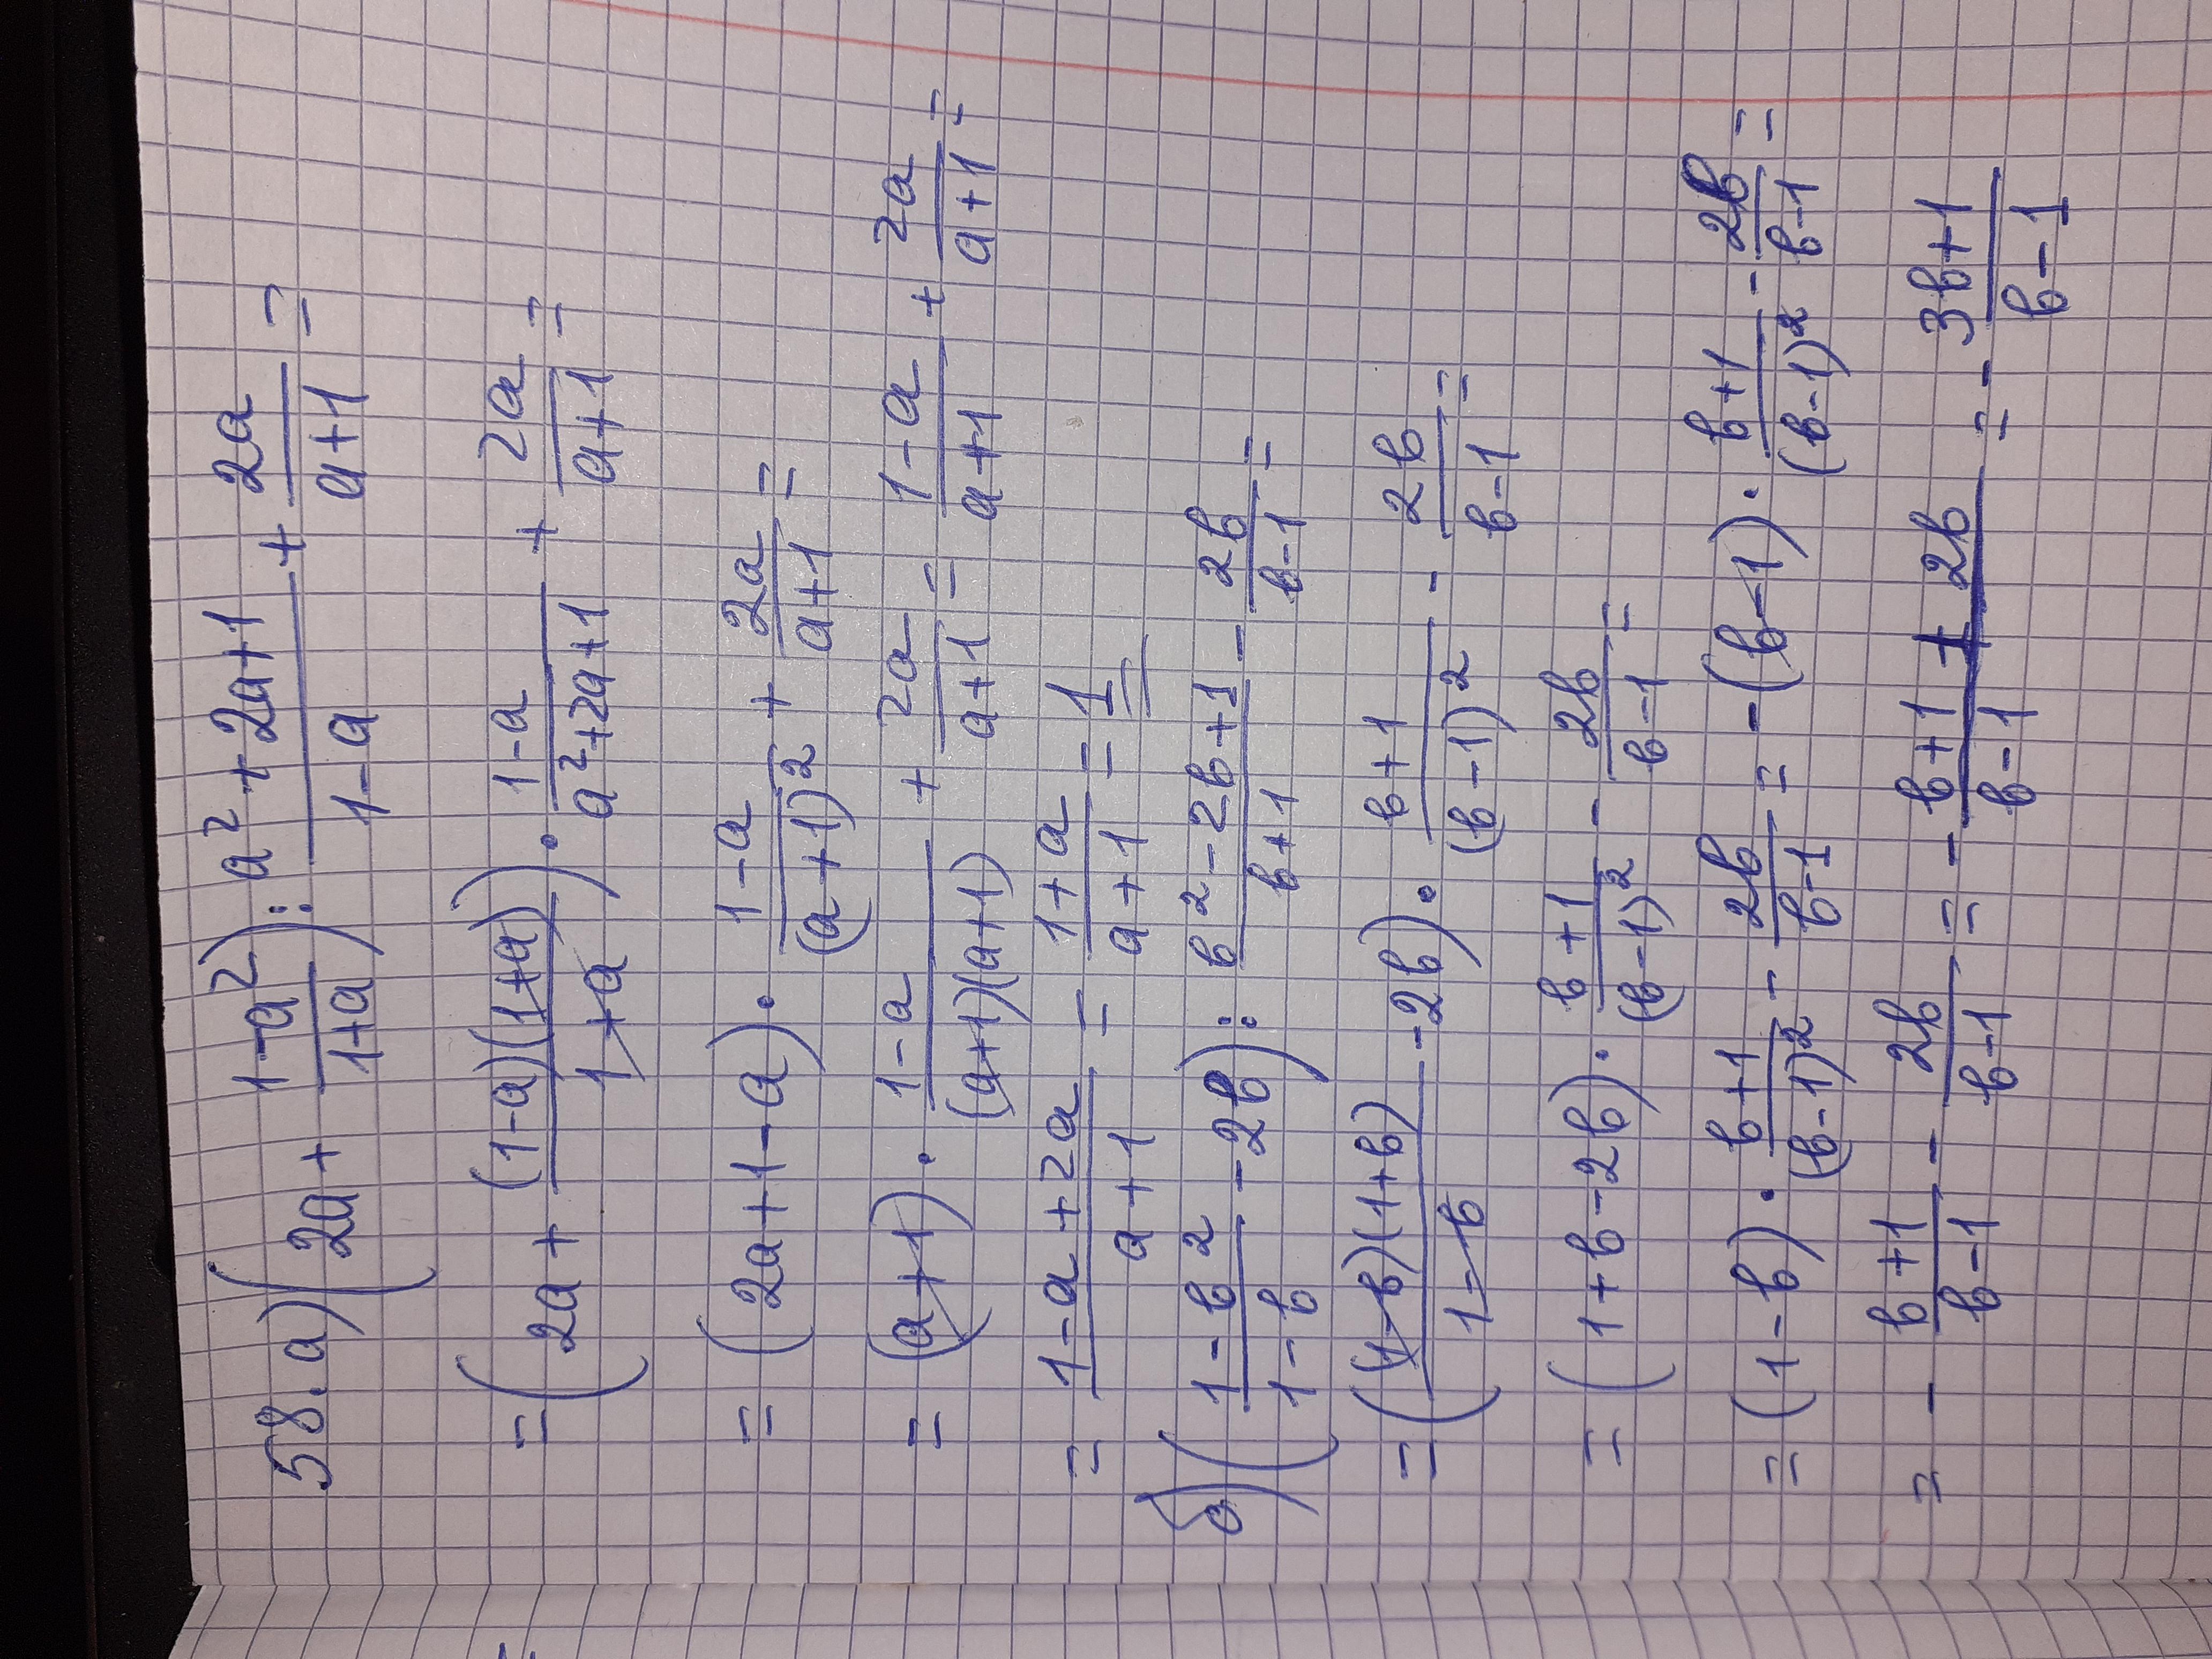 58. а) (2a + (1-a²)/(1+a)) : (a²+2a+1)/(1-a) + 2a/(a+1) =
= (2a + (1-a)(1+a)/(1+a)) · (1-a)/(a²+2a+1) + 2a/(a+1) =
= (2a+1-a) · (1-a)/(a+1)² + 2a/(a+1) =
= (a+1) · (1-a)/((a+1)(a+1)) + 2a/(a+1) = (1-a)/(a+1) + 2a/(a+1) =
= (1-a+2a)/(a+1) = (1+a)/(a+1) = 1
б) ((1-b²)/(1-b) - 2b) : (b²-2b+1)/(b+1) - 2b/(b-1) =
= ((1-b)(1+b)/(1-b) - 2b) · (b+1)/(b-1)² - 2b/(b-1) =
= (1+b-2b) · (b+1)/(b-1)² - 2b/(b-1) =
= (1-b) · (b+1)/(b-1)² - 2b/(b-1) = -(b-1) · (b+1)/(b-1)² - 2b/(b-1) =
= - (b+1)/(b-1) - 2b/(b-1) = - (b+1+2b)/(b-1) = - (3b+1)/(b-1)